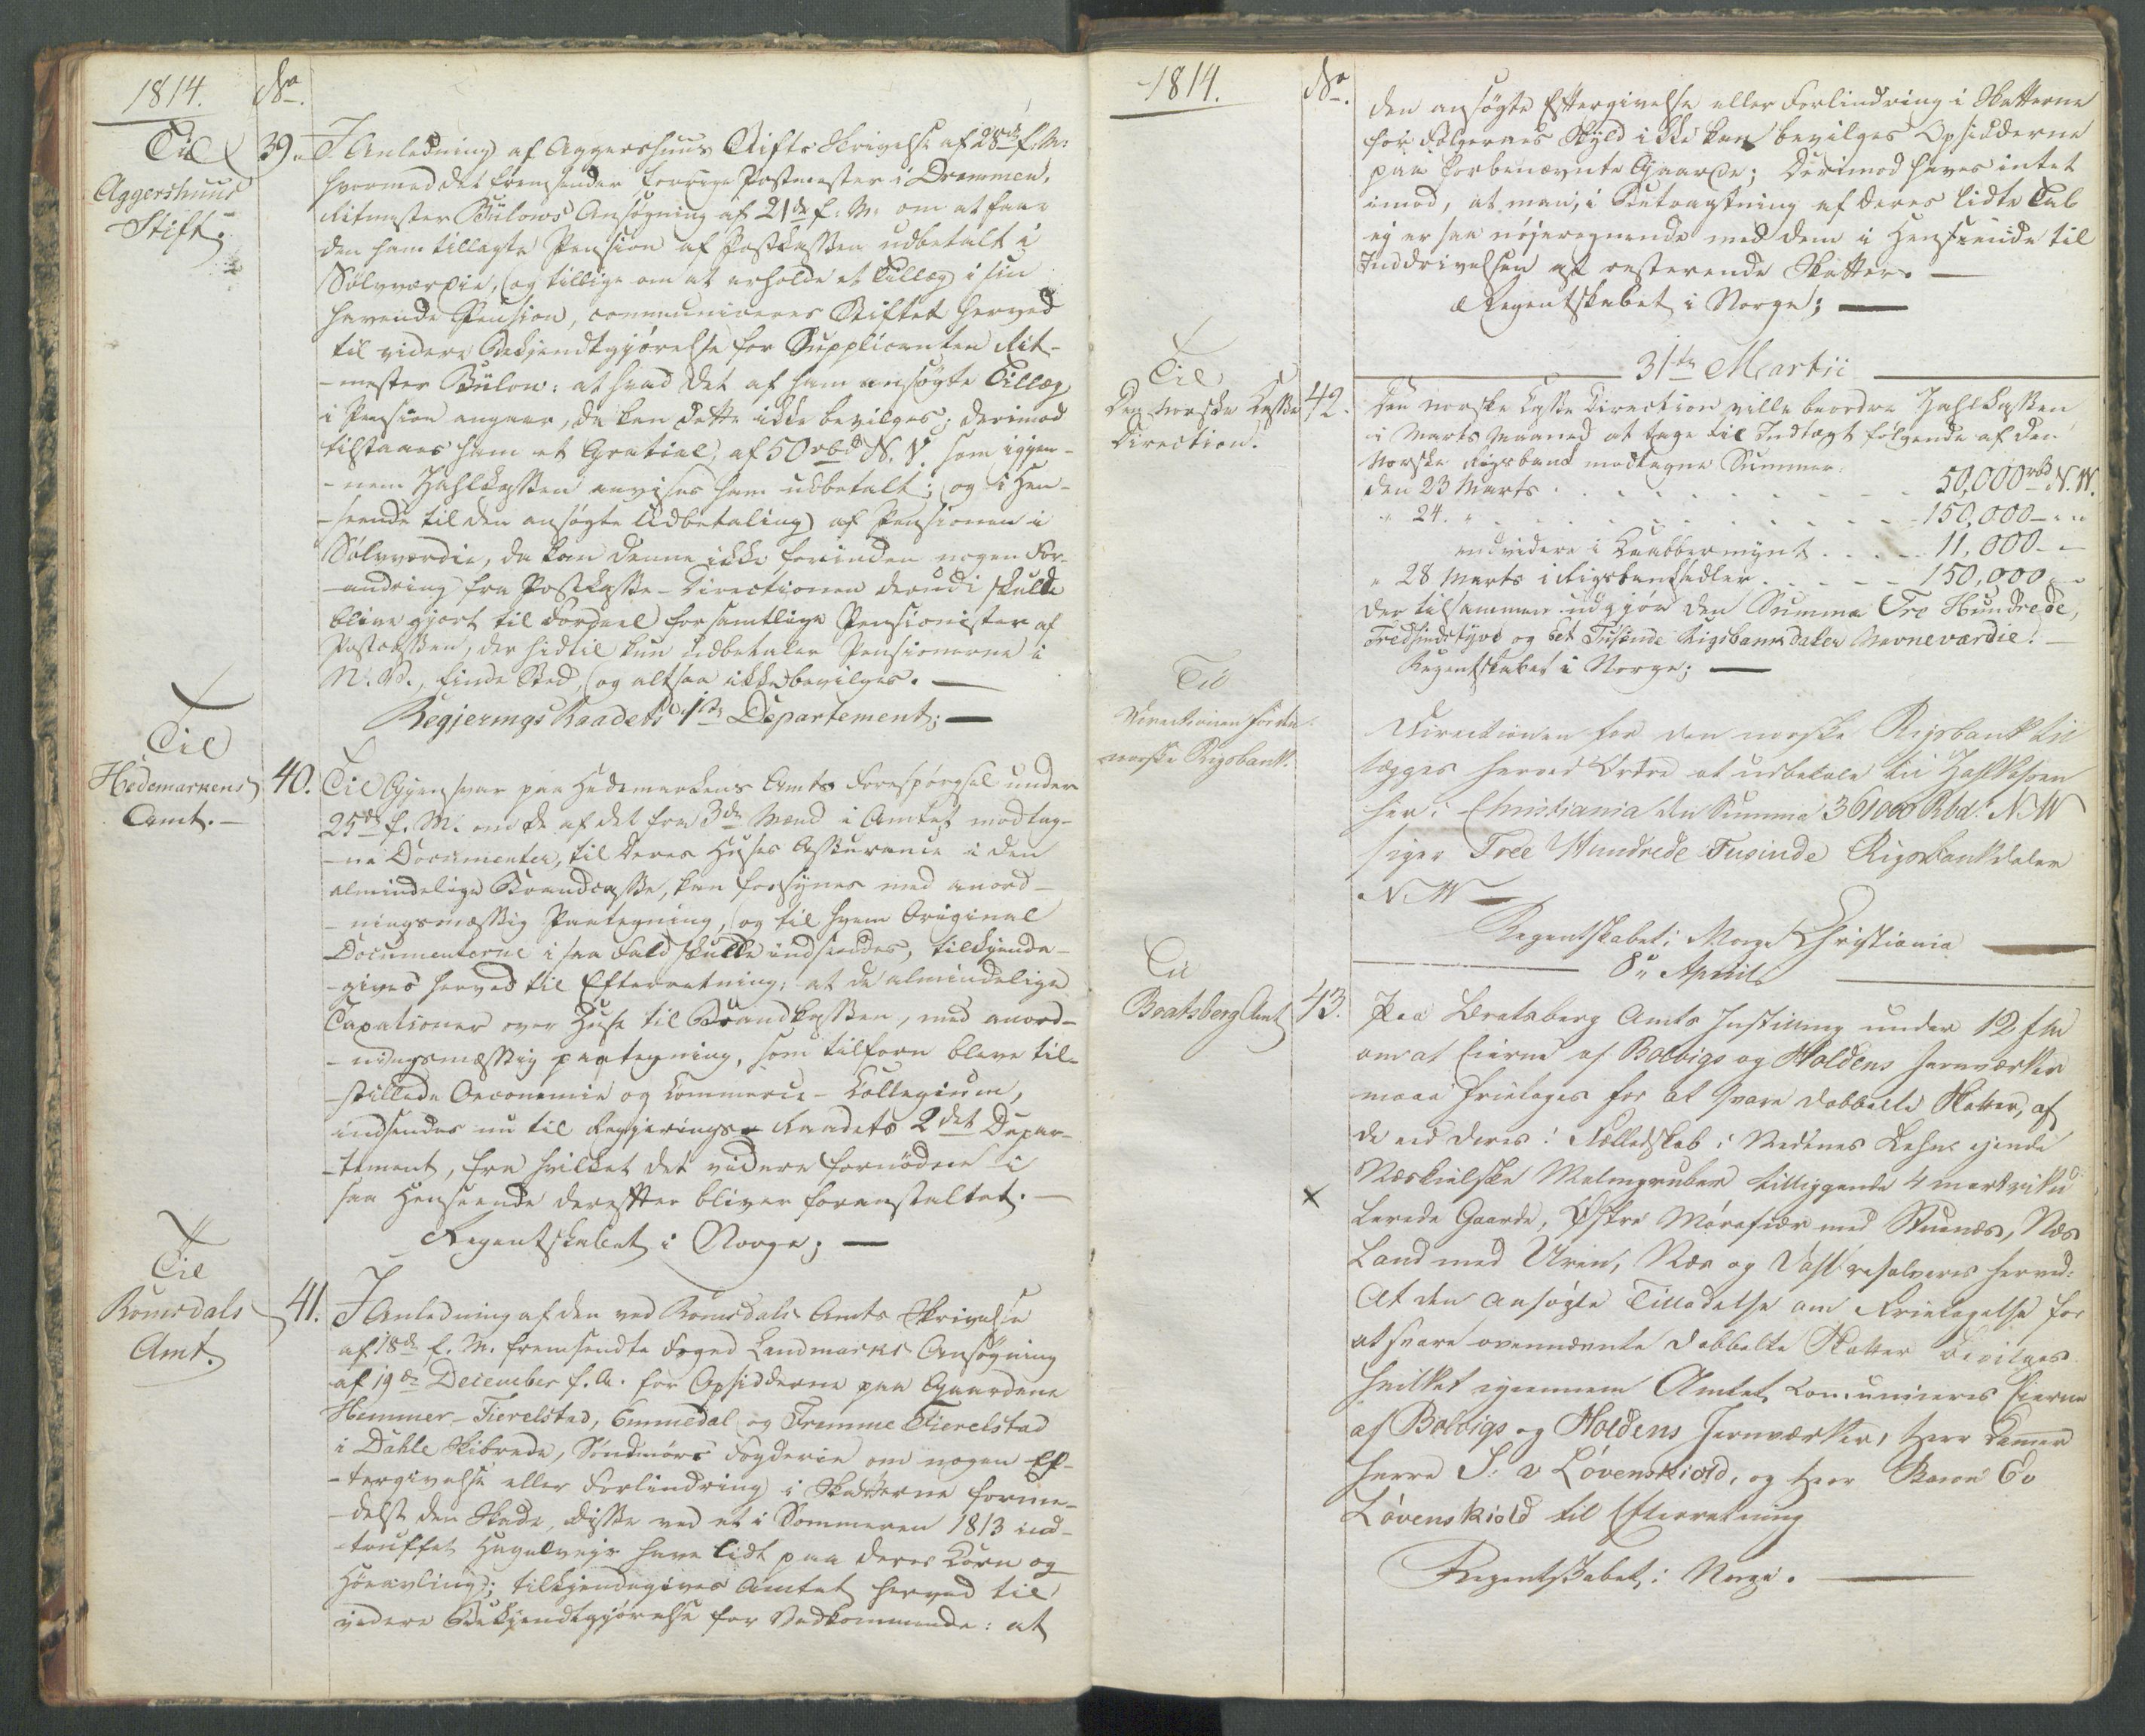 1814.
No.
Til
Aggershuus
Stift.
39.
I Anledning af Aggershuus Stifts Skrivelse af 28de f. M:
hvormed det fremsender forrige Postmester i Drammen,
Ritmester Bülows Ansøgning af 21de f. M. om at faae
den ham tillagte Pension af Postkassen udbetalt i
Sølvværdie, og tillige om at erholde et Tillæg i sin
havende Pension, communiceres Stiftet herved
til videre Bekjendtgjørelse for Supplicanten Rit-
-mester Bülow: at hvad det af ham ansøgte Tillæg
i Pension angaaer, da kan dette ikke bevilges; derimod
tilstaaes ham et Gratial af 50 rbd N. V. som igjen-
-nem Zahlkassen anvises ham udbetalt; og i Hen-
-seende til den ansøgte Udbetaling af Pensionen i
Sølvværdie, da kan denne ikke, forinden nogen For-
-andring fra Postkasse-Directionen derudi skulde
blive gjort til Fordeel for samtlige Pensionister af
Postcassen, der hidtil kun udbetaler Pensionerne i
N. V., finde Sted, og altsaa ikke bevilges. —
Regjerings Raadets 1ste Departement; —
Til
Hedemarkens
Amt. —
40.
Til Gjensvar paa Hedemarkens Amts Forespørgsel under
25de f. M. om de af det fra 3de Mænd i Amtet modtag-
-ne Documenter, til deres Huses Assurance i den
almindelige Brandcasse, kan forsynes med anord-
-ningsmæssig Paategning, og til hvem Original
Documenterne i saa Fald skulle indsendes, tilkjende-
-gives herved til Efterretning: at de almindelige
Taxationer over Huse til Brandkassen, med anord-
-ningsmæssig paategning, som tilforn bleve til-
-stillede Oeconomie og Commerce-Collegium,
indsendes nu til Regjerings-Raadets 2det Depar-
-tement, fra hvilket det videre fornødne i
saa Henseende derefter bliver foranstaltet. —
Regentskabet i Norge; —
Til
Romsdals
Amt.
41.
I Anledning af den ved Romsdals Amts Skrivelse
af 18de f. M. fremsendte Foged Landmarks Ansøgning
af 19de December f. A. for Opsidderne paa Gaardene
Hemmer-Fierelstad, Emmedal og Fremme Fierelstad
i Dahle Skibrede, Søndmørs Fogderie om nogen Ef-
-tergivelse eller Forlindring i Skatterne forme-
-delst den Skade, disse ved et i Sommeren 1813 ind-
-truffet Hagelveyr have lidt paa deres Korn og
Høeavling; tilkjendegives Amtet herved til
videre Bekjendtgjørelse for Vedkommende: at
1814.
No.
den ansøgte Eftergivelse eller Forlindring i Skatterne
for Følgernes Skyld ikke kan bevilges Opsidderne
paa forbenævnte Gaarde; derimod haves intet
imod, at man, i Betragtning af deres lidte Tab
ej er saa nøjeregnende med dem i Henseende til
Inddrivelsen af resterende Skatter. —
Regentskabet i Norge; —
31te Martii
Til
Den norske Casse
Direction.
42.
Den norske Casse Direction ville beordre Zahlkassen
i Marts Maaned at tage til Indtægt følgende af den
Norske Rigsbank modtagne Summer:
den 23 Marts . . . . . . . . 50,000 rbd N. W.
" 24. " . . . . . . . . 150,000 — " "
endvidere i Kaabbermynt . . . . 11,000. —
" 28 Marts i Rigsbanksedler . . . . . 150,000 "
der tilsammen udgjør den Summa Tre Hundrede,
Tredsindstyve og eet Tusinde Rigsbanksdaler Navneværdie. —
Regentskabet i Norge; —
Til
Directionen for den
norske Rigsbank.
Directionen for den norske Rigsbank til
lægges herved Ordre at udbetale til Zahlkassen
her i Christiania den Summa 361000 Rbd. NW
siger Tree Hundrede Tusinde Rigsbankdaler
NW —
Regentskabet i Norge Christiania
8de April
Til
Bratsberg Amt
43.
Paa Bratsberg Amts Instilling under 12 f M
om at Eierne af Bolvigs og Holdens Jernværker
maae fritages for at svare dobbelte Skatter, af
de ved deres i Fælledskab i Nedenes Lehn ejende
Næskielske Malmgruber tilliggende 4 matriku
x
lerede Gaarde, Østre Mørefiær med Stuenæs, Næs
Land med Uren, Næs og Dahl resolveres herved:
At den ansøgte Tilladelse om Fritagelse for
at svare ovennævnte dobbelte Skatter bevilges
hvilket igiennem Amtet Communiceres Eierne
af Bolvigs og Holdens Jernværker, Herr Kammer
Herre S. v Løvenskiold, og Herr Baron Ev
Løvenskiold til Efterretning
Regentskabet i Norge. —